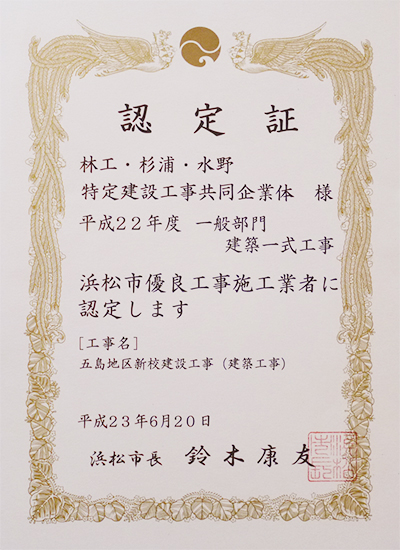 認定証
林工・杉浦・水野
特定建設工事共同企業体 様
平成22年度 一般部門
建築一式工事
浜松市優良工事施工業者に
認定します
[工事名]
五島地区新校建設工事（建築工事）
平成23年6月20日
浜松市長 鈴木康友